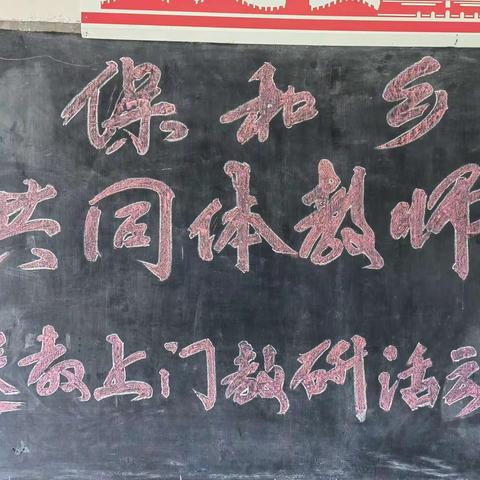 保和乡
共同体教师
送教上门教研活动